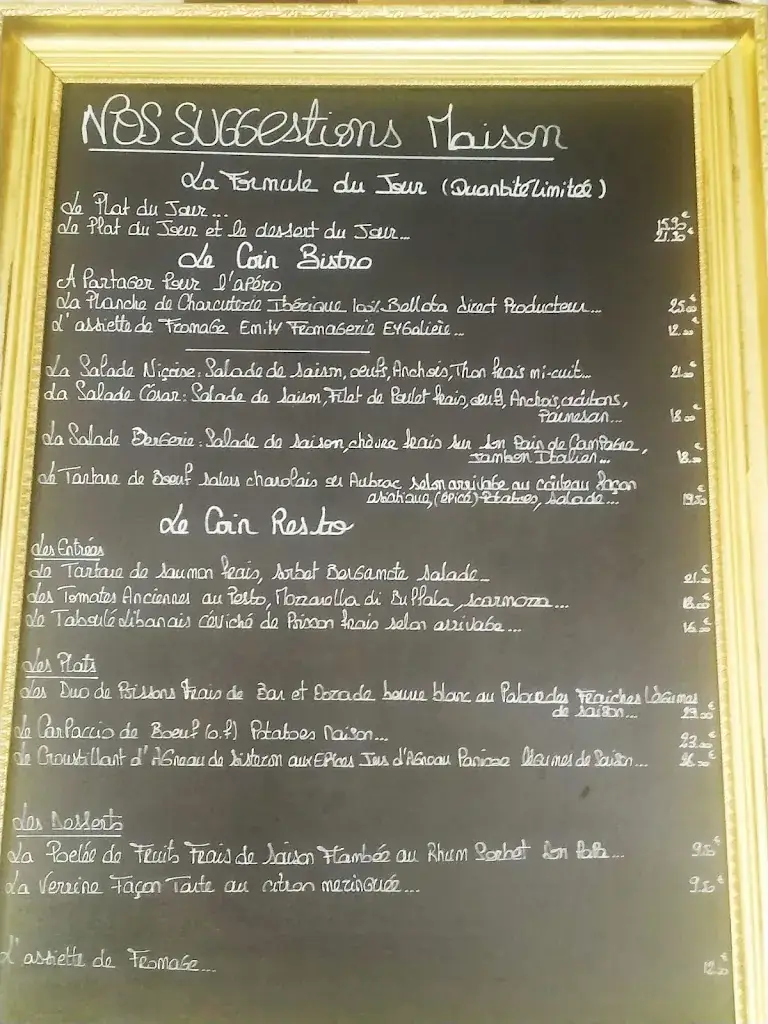 NOS SUGGestions Maison
La Formule du Jour (Quantité Limitée)
Le Plat du Jour... 15.90€
Le Plat du Jour et le dessert du Jour... 21.90€
Le Coin Bistro
A Partager Pour l'apéro
La Planche de Charcuterie Ibérique 100% Bellota direct Producteur... 25.00€
L'assiette de Fromage Emily Fromagerie Eygalière... 12.00€
La Salade Niçoise: Salade de saison, oeufs, Anchois, Thon frais mi-cuit... 21.00€
La Salade César: Salade de saison, Filet de Poulet frais, oeuf, Anchois, croûtons,
Parmesan... 18.00€
La Salade Bergerie: Salade de saison, chèvre frais sur son Pain de Campagne,
Jambon Italien... 18.00€
Le Tartare de Boeuf salers charolais ou Aubrac selon arrivage au couteau façon
asiatique, (épicé) Potatoes, Salade... 19.50€
Le Coin Resto
Les Entrées
Le Tartare de saumon frais, sorbet Bergamote salade... 21.00€
Les Tomates Anciennes au Pesto, Mozzarella di Buffala, scarmoza... 18.00€
Le Taboulé Libanais céviché de Poisson frais selon arrivage... 16.00€
Les Plats
Les Duo de Poissons Frais de Bar et Dorade beurre blanc au Fraiches Légumes
de saison... 29.00€
Le Carpaccio de Boeuf (o.f) Potatoes Maison... 23.00€
Le Croustillant d'AGneau de Sisteron aux EPices Jus d'AGneau Panisse légumes de Saison... 26.00€
Les Desserts
La Poelée de Fruits Frais de Saison Flambée au Rhum Sorbet... 9.50€
La Verrine Façon Tarte au citron merinGuée... 9.50€
L'assiette de FromaGe... 12.50€